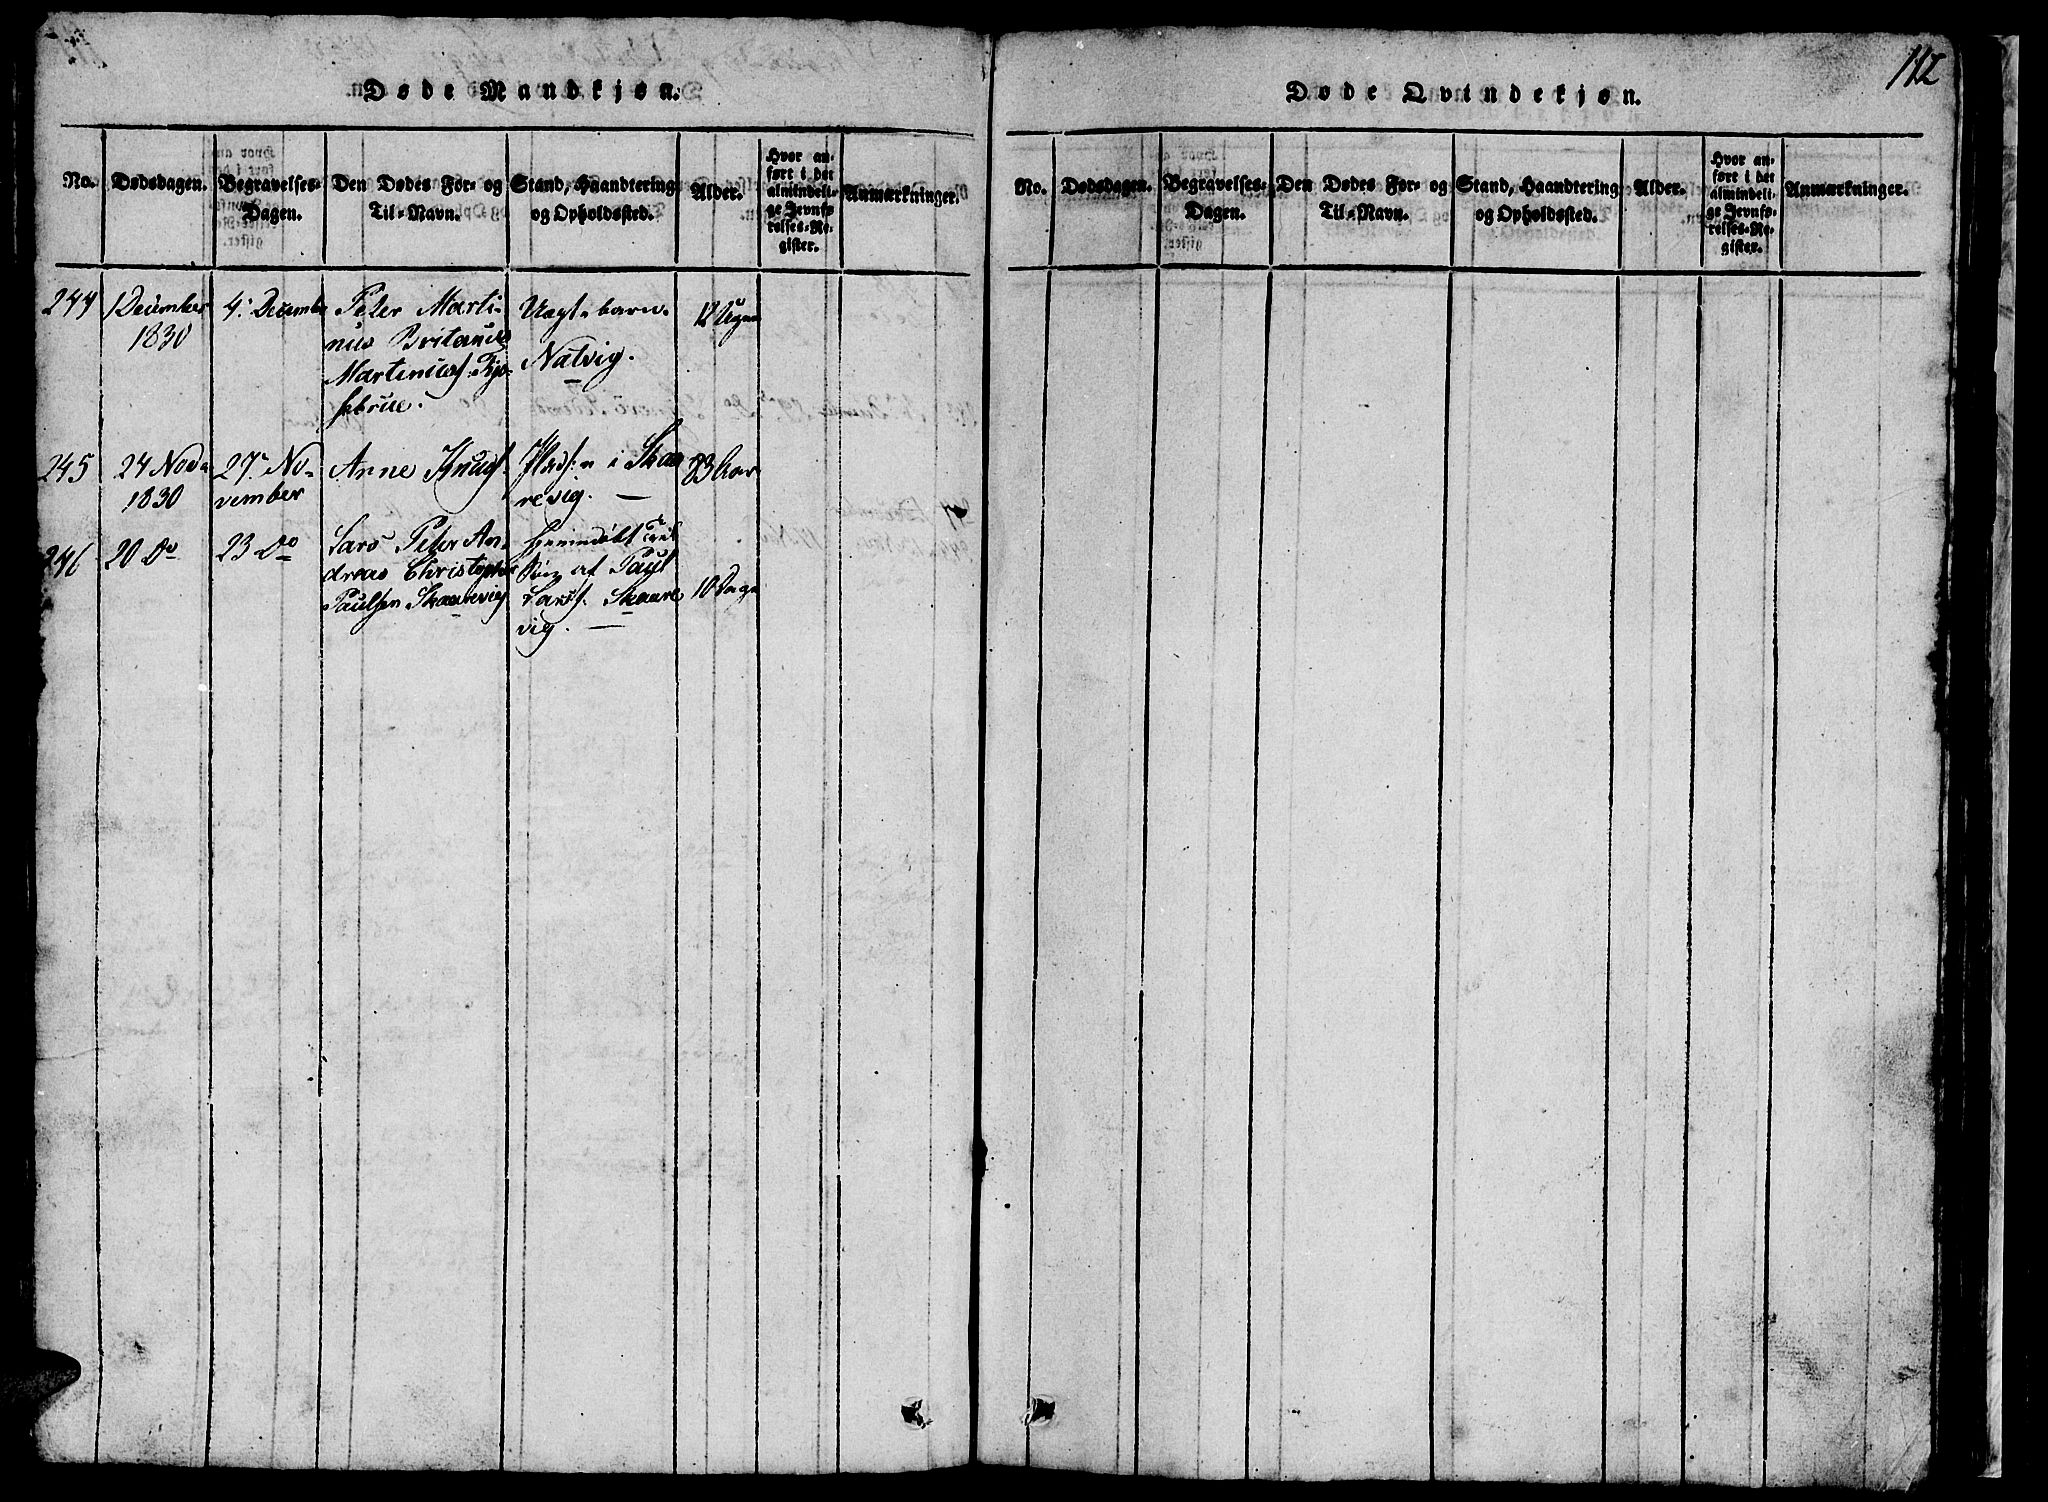 112
Døde Mandkjøn.
No.
Dødsdagen.
Begravelses-
Dagen.
Den Dødes For- og
Til-Navn.
Stand, Haandtering
og Opholdssted.
Alder.
Hvor an-
ført i det
almindeli-
ge Jevnfø-
relses-Re-
gister.
Anmærkninger.
244
1 December
1830
4. Decembr
Peter Marti-
nus Britanus
Natvig.
12 Uger
245
24 Nov.
1830
27. No-
vember
Arne Knuds.
i Skaa
revig. —
83 Aar
246
20 Do
23 Do
Lars Peter An-
dreas Christopher
Paulsen Skaarevig
hjemmedøbt
af Paul
Larss. Skaare
vig. —
10 Dage
Døde Qvindekjøn.
No.
Dødsdagen.
Begravelses-
Dagen.
Den Dødes For- og
Til-Navn.
Stand, Haandtering
og Opholdssted.
Alder.
Hvor an-
ført i det
almindeli-
ge Jevnfø-
relses-Re-
gister.
Anmærkninger.